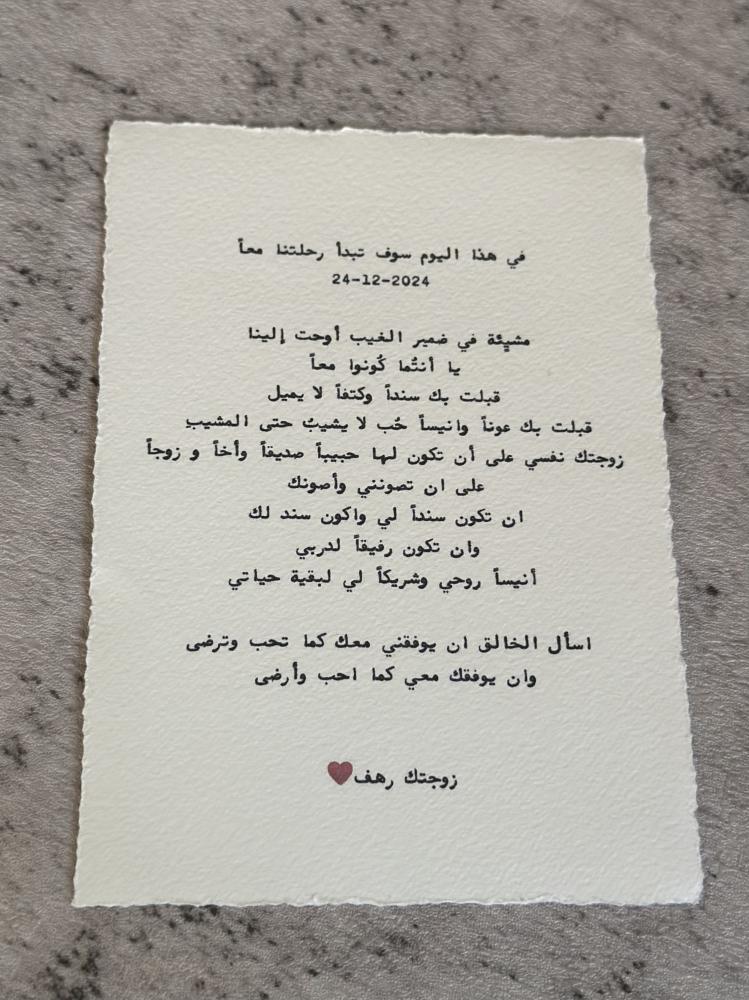 في هذا اليوم سوف تبدأ رحلتنا معاً
24-12-2024
مشيئة في ضمير الغيب أوحت إلينا
يا أنتُما كُونوا معاً
قبلت بك سنداً وكتفاً لا يميل
قبلت بك عوناً وانيساً حُب لا يشيبُ حتى المشيبِ
زوجتك نفسي على أن تكون لها حبيباً صديقاً وأخاً و زوجاً
على ان تصونني وأصونك
ان تكون سنداً لي واكون سند لك
وان تكون رفيقاً لدربي
أنيساً روحي وشريكاً لي لبقية حياتي
اسأل الخالق ان يوفقني معك كما تحب وترضى
وان يوفقك معي كما احب وأرضى
زوجتك رهف❤️